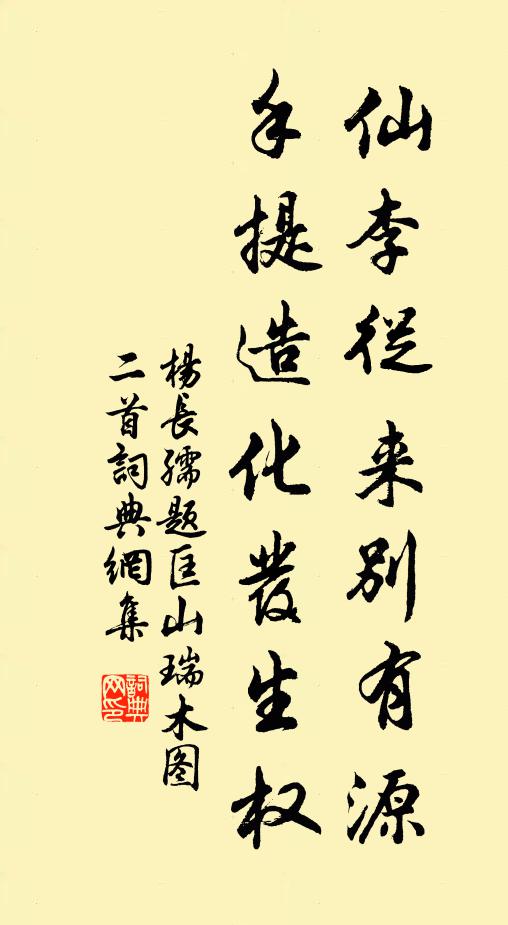 仙李從来別有源
手提造化發生权
楊長孺题匡山瑞木图
二首詞典網集
詞典网印